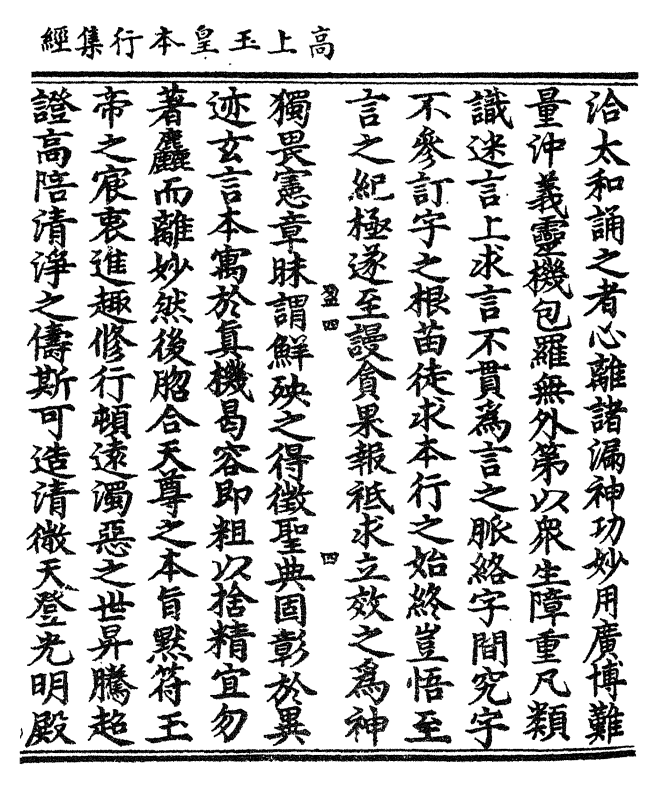 高上玉皇本行集經
洽太和誦之者心離諸漏神功妙用廣博難
量沖義靈機包羅無外第以眾生障重凡類
識迷言上求言不貫為言之脈絡字間究字
不參訂字之根苗徒求本行之始終豈悟至
言之紀極遂至謾貪果報祗求立效之為神
盈四
四
獨畏憲章昧謂鮮殃之得徵聖典固彰於異
迹玄言本寓於真機曷容即粗以捨精宜勿
著麤而離妙然後脗合天尊之本旨默符玉
帝之宸衷進趣修行頓遠濁惡之世昇騰超
證高陪清淨之儔斯可造清微天登光明殿